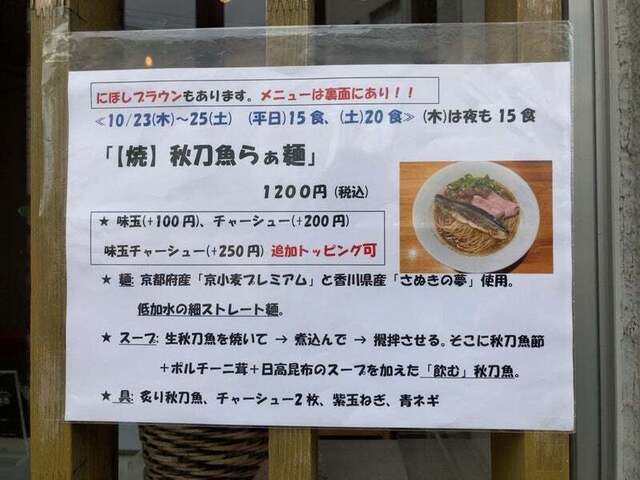 にぼしブラウンもあります。メニューは裏面にあり！！
≪10/23(木)～25(土) (平日)15食、(土)20食≫ (木)は夜も15食
「【焼】秋刀魚らぁ麺」
1200円(税込)
★ 味玉(+100円)、チャーシュー(+200円)
味玉チャーシュー(+250円) 追加トッピング可
★ 麺: 京都府産「京小麦プレミアム」と香川県産「さぬきの夢」使用。
低加水の細ストレート麺。
★ スープ: 生秋刀魚を焼いて → 煮込んで → 攪拌させる。そこに秋刀魚節
＋ポルチーニ茸＋日高昆布のスープを加えた「飲む」秋刀魚。
★ 具: 炙り秋刀魚、チャーシュー2枚、紫玉ねぎ、青ネギ